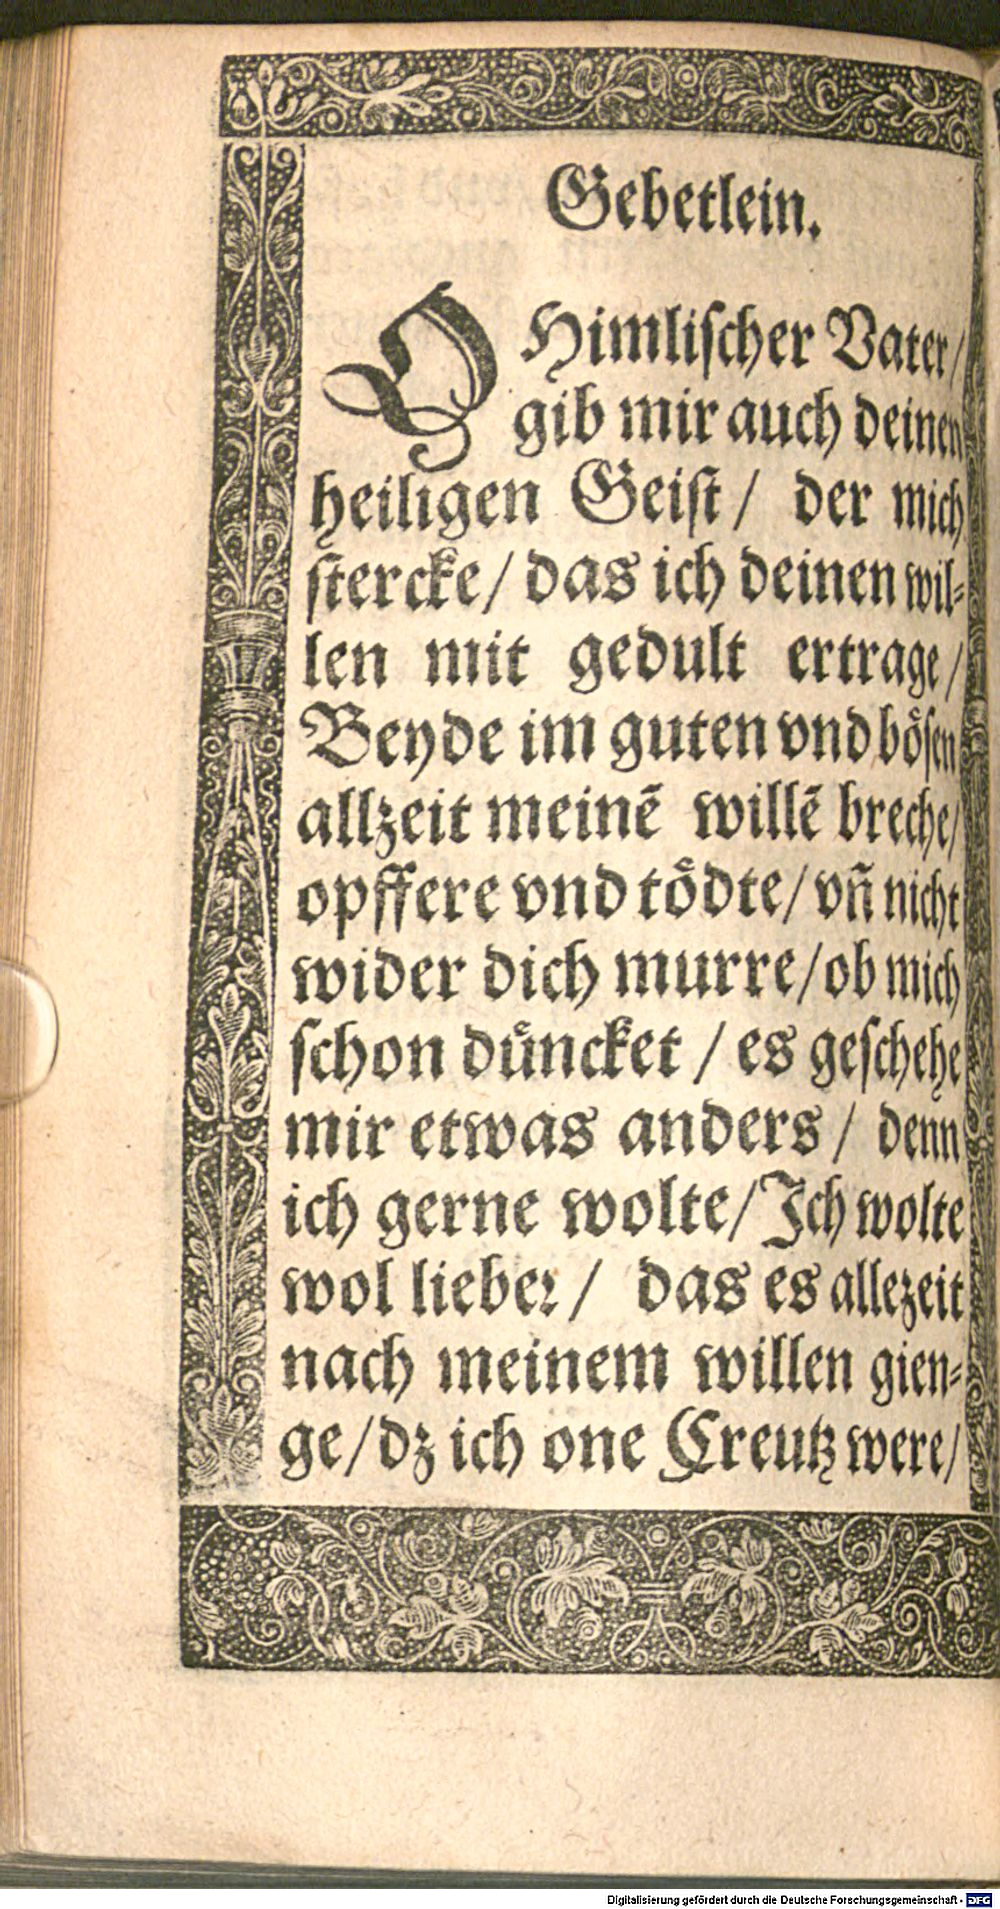 Gebetlein.
O Himlischer Vater/
gib mir auch deinen
heiligen Geist/ der mich
stercke/ das ich deinen wil-
len mit gedult ertrage/
Beyde im guten vnd bösen
allzeit meinē willē breche/
opffere vnd tödte/ vñ nicht
wider dich murre/ ob mich
schon düncket/ es geschehe
mir etwas anders/ denn
ich gerne wolte/ Ich wolte
wol lieber/ das es allezeit
nach meinem willen gien-
ge/ dz ich one Creutz were/
Digitalisierung gefördert durch die Deutsche Forschungsgemeinschaft - DFG